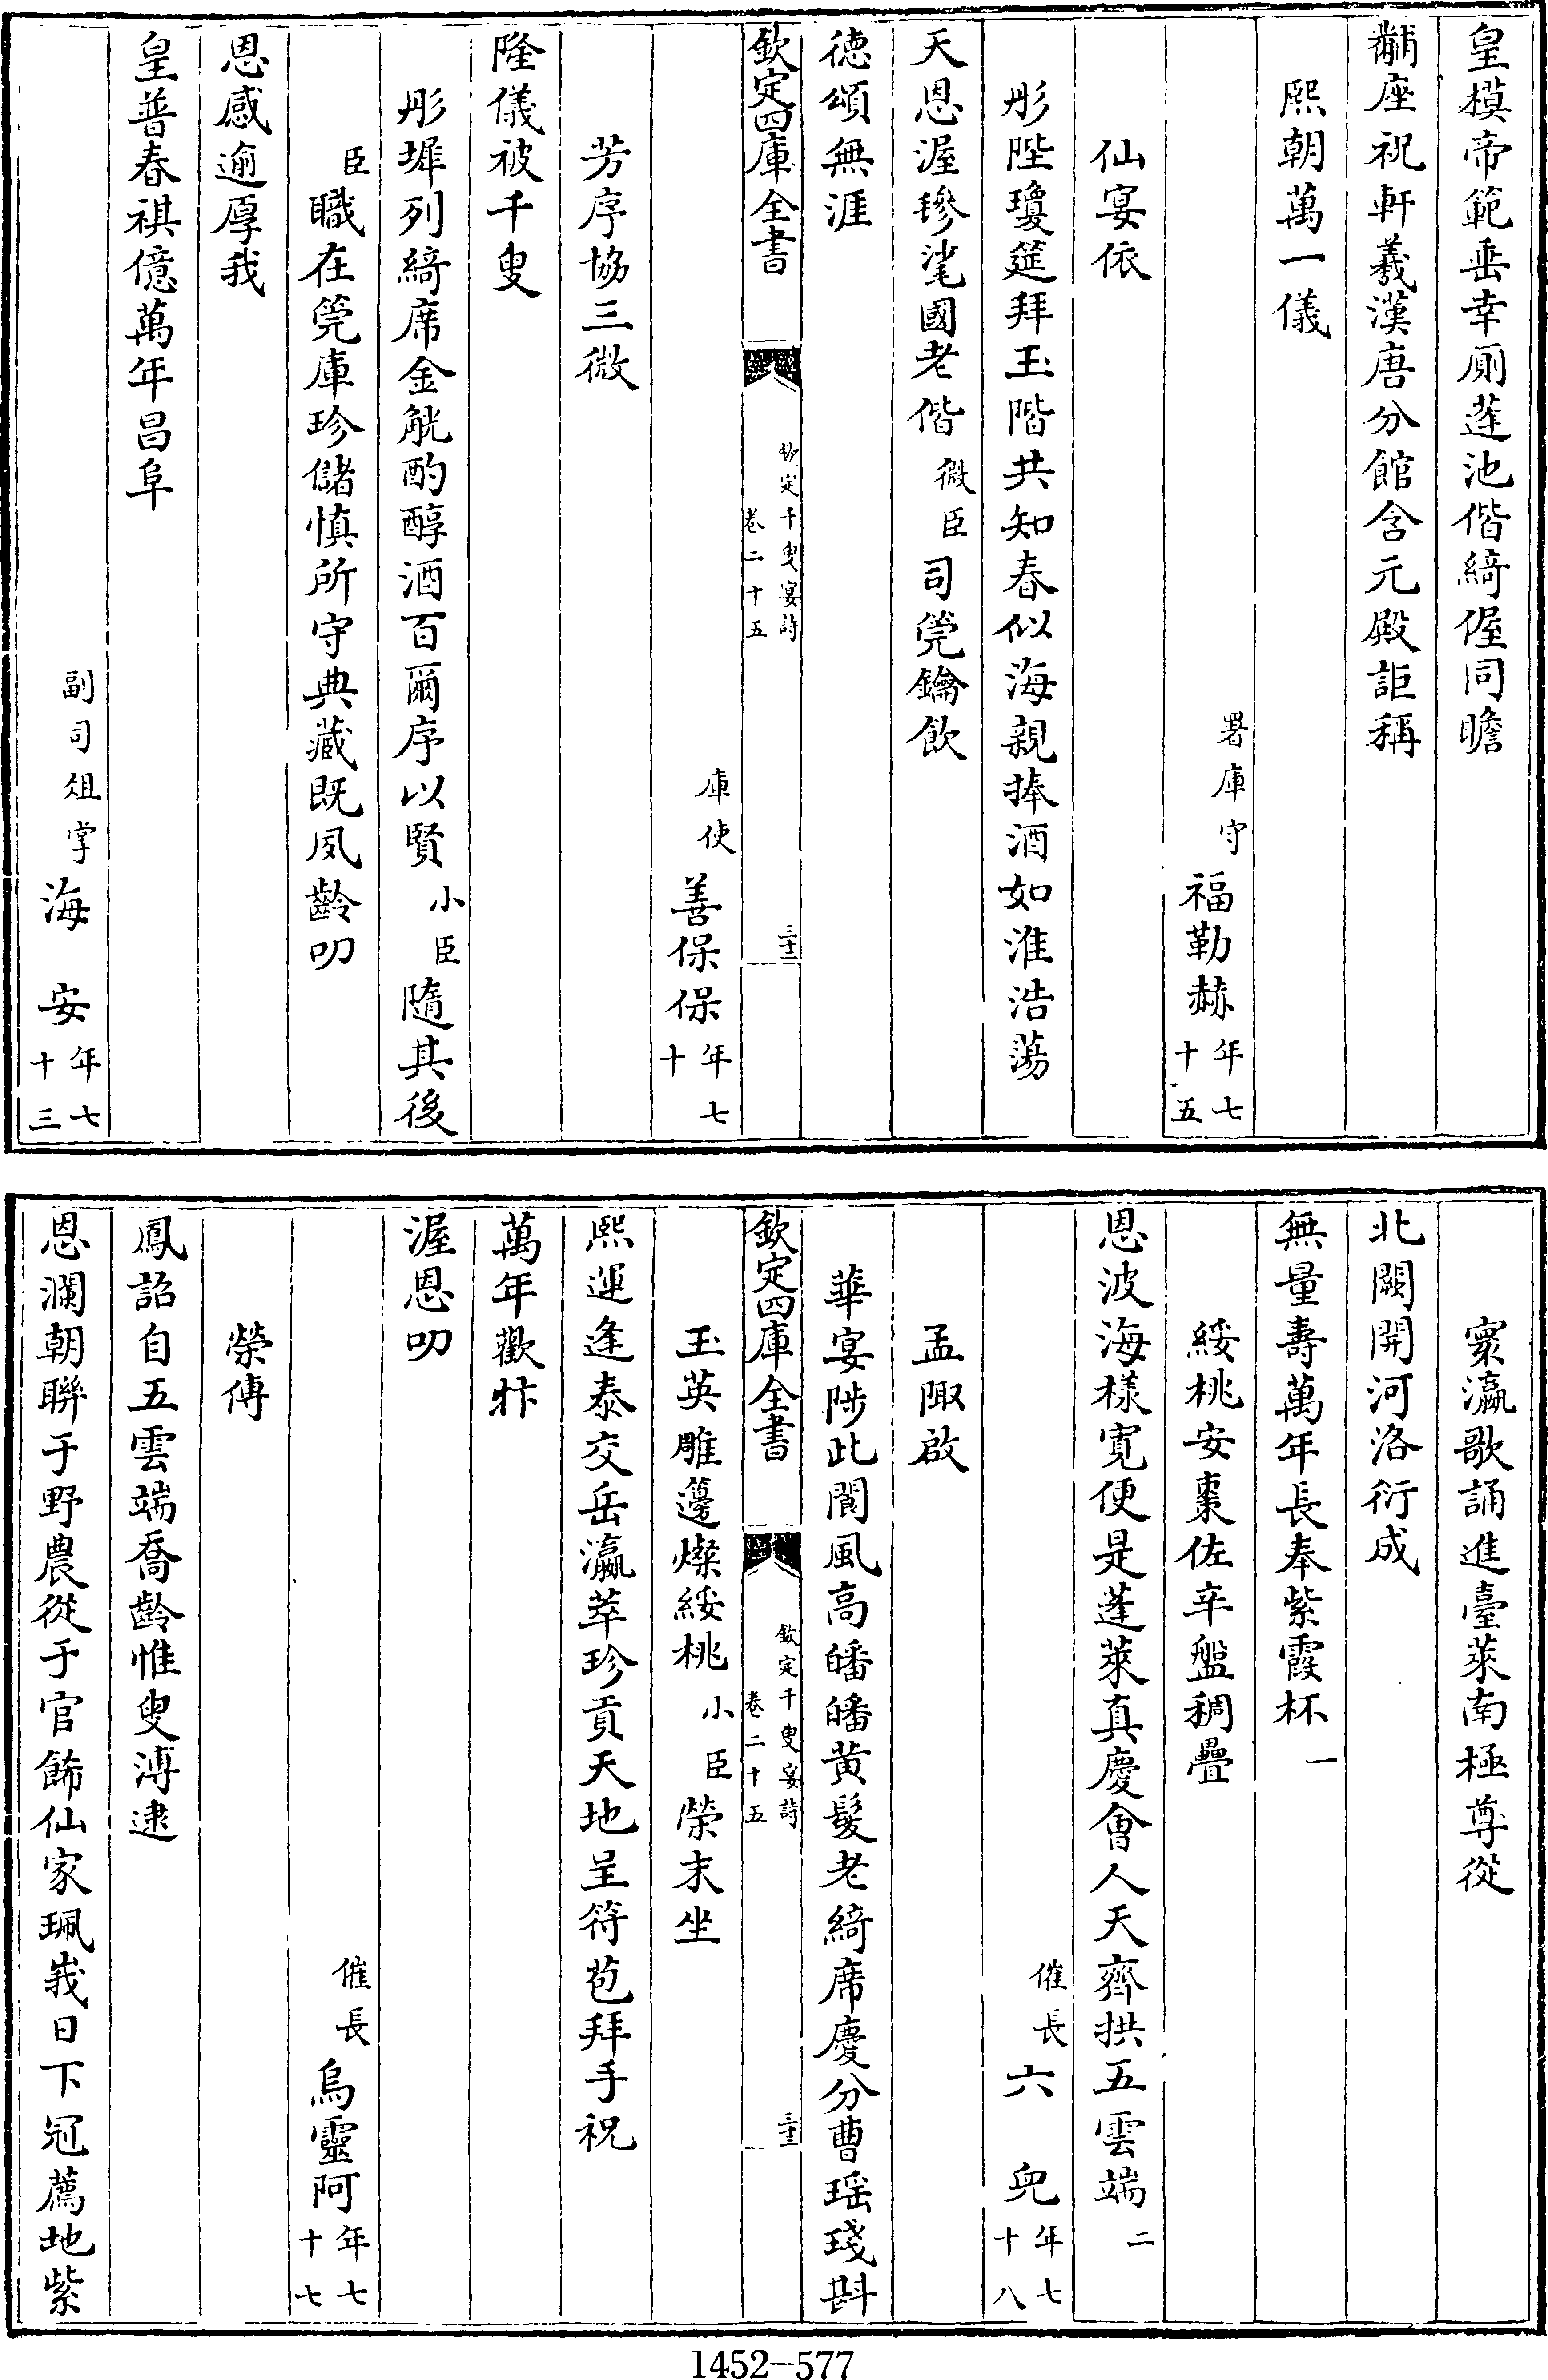 皇模帝範垂幸廁蓬池偕綺偓同瞻
黼座祝軒羲漢唐分館含元殿詎稱
熙朝萬一儀
署庫守福勒赫年七十五
仙宴依
彤陛瓊筵拜玉階共知春似海親捧酒如淮浩蕩
天恩渥毿毿國老偕微臣司筦鑰飲
德頌無涯
欽定四庫全書
欽定千叟宴詩
卷二十五
三十二
庫使善保保年七十
芳序協三微
隆儀被千叟
彤墀列綺席金觥酌醇酒百爾序以賢小臣隨其後
臣職在筦庫珍儲慎所守典藏既夙齡叨
恩感逾厚我
皇普春祺億萬年昌阜
副司俎掌海安年七十三
寰瀛歌誦進臺萊南極尊從
北闕開河洛衍成
無量壽萬年長奉紫霞杯一
綏桃安棗佐辛盤稠疊
恩波海樣寬便是蓬萊真慶會人天齊拱五雲端二
催長六兒年七十八
孟陬啟
華宴陟此閬風高皤皤黃髮老綺席慶分曹瑶琖斟
欽定四庫全書
欽定千叟宴詩
卷二十五
三十三
玉英雕籩燦綏桃小臣榮末坐
熙運逢泰交岳瀛萃珍貢天地呈符苞拜手祝
萬年歡忭
渥恩叨
催長烏靈阿年七十七
榮傳
鳳詔自五雲端喬齡惟叟溥逮
恩瀾朝聯于野農從于官飾仙家珮峩日下冠薦地紫
1452—577